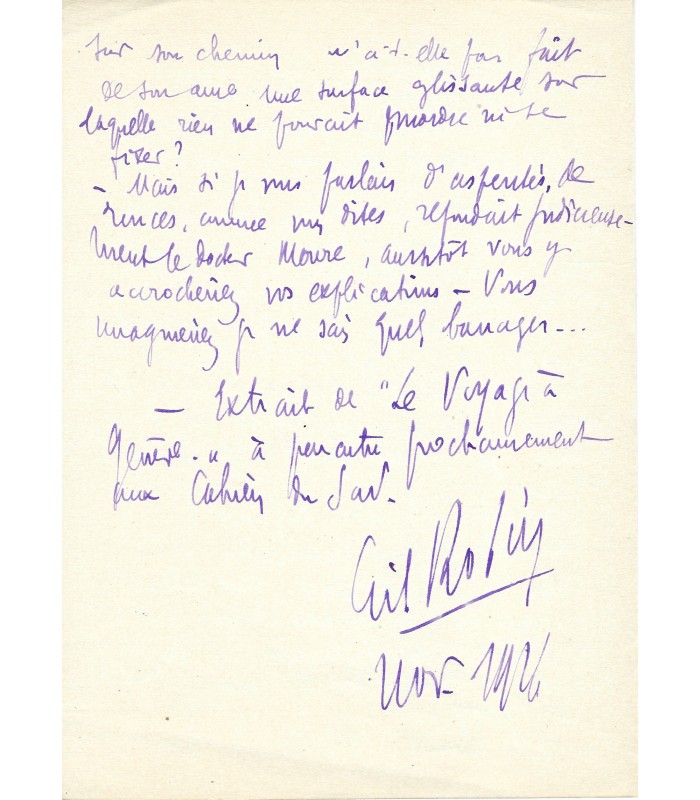 sur son chemin n'a-t-elle pas fait
de son âme une surface glissante sur
laquelle rien ne pourrait mordre ni se
fixer?
- Mais si je vous parlais d'aspérités, de
comme vous dites, répondait judicieuse-
ment le docteur Moure, aussitôt vous y
accrocheriez vos explications - Vous
imagineriez je ne sais quel barrages...
- Extrait de "Le Voyage à
Genève." à paraître prochainement
aux Cahiers du Sud.
Gil Robin
nov. 1926